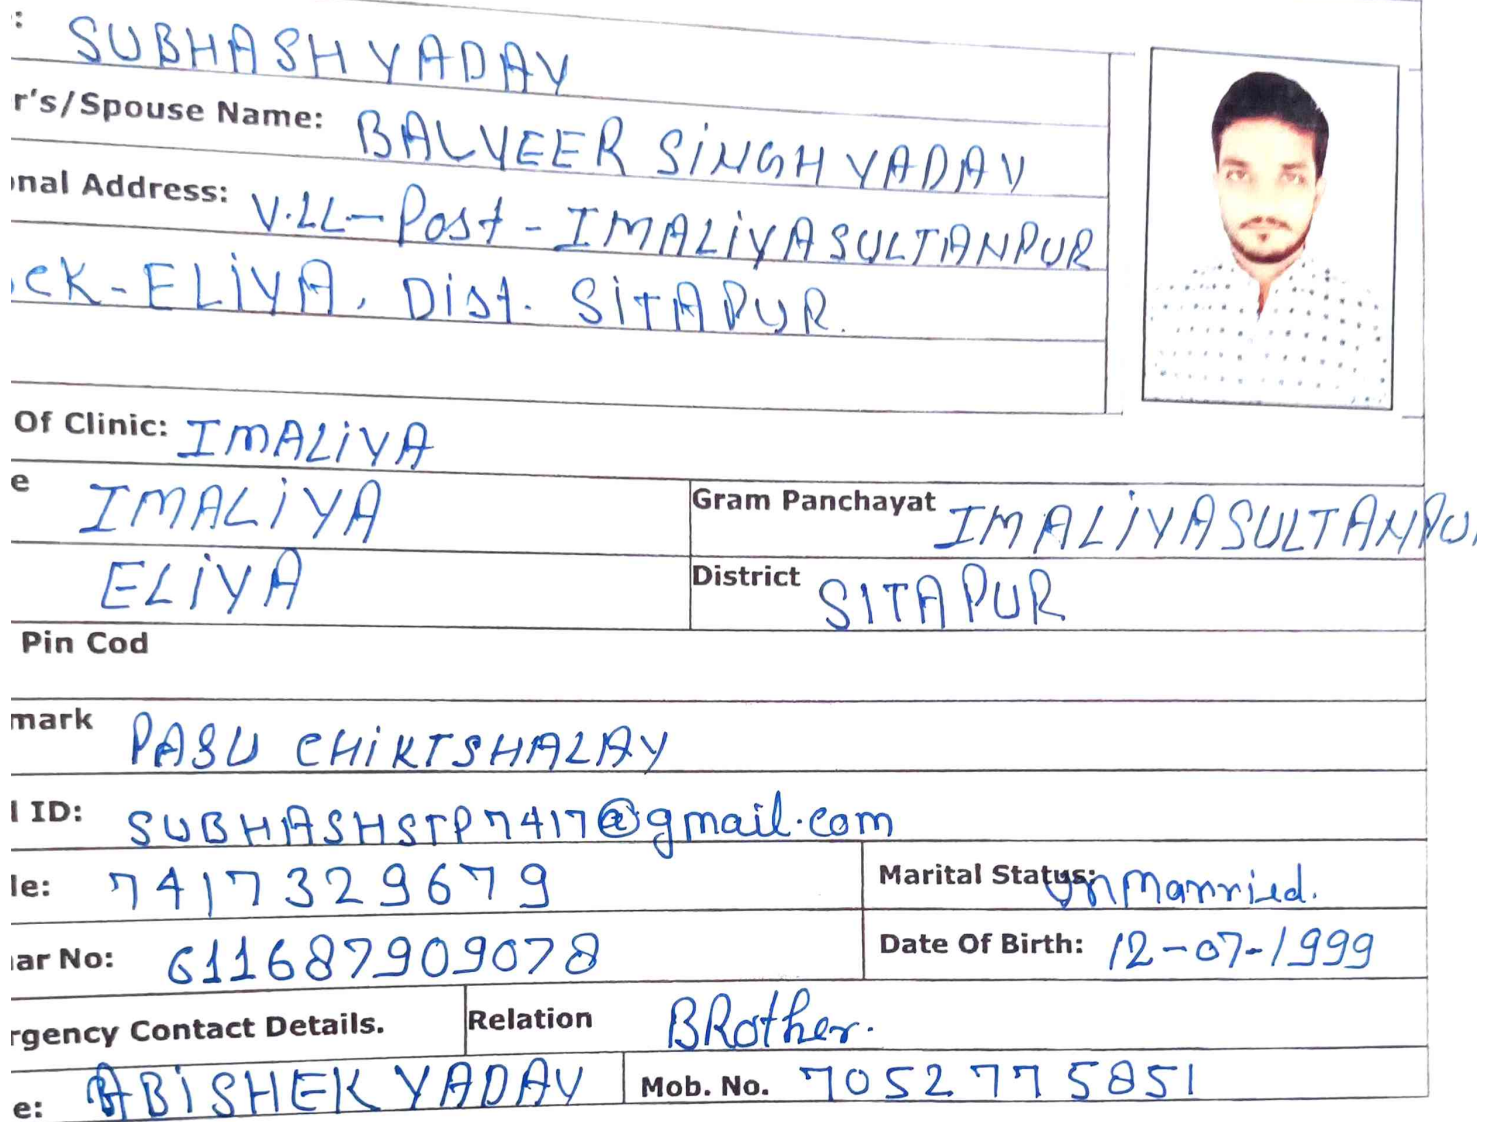 : SUBHASH YADAV
r's/Spouse Name: BALVEER SiNGH YADAV
nal Address: V.LL-Post-IMALiYASULTANPUR
ck-ELiYA, Dist. SiTAPUR.
Of Clinic: IMALiYA
e IMALiYA Gram Panchayat IMALiYASULTANPU
ELiYA District SITAPUR
Pin Cod
mark PASU CHiKTSHALAY
l ID: SUBHASHSTP7417@gmail.com
le: 7417329679 Marital Status: Unmarried.
ar No: 611687909078 Date Of Birth: 12-07-1999
rgency Contact Details. Relation BRother.
e: ABiSHEK YADAV Mob. No. 7052775851